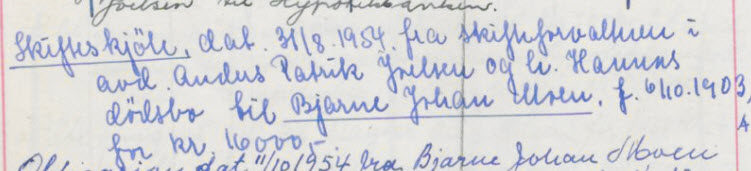 Joelsen til Hypotekbanken.
Skifteskjöte, dat. 31/8.1954. fra skifteforvalteren i
avd. Anders Patrik Joelsen og h. Hannas
dödsbo til Bjarne Johan Moen, f. 6/10.1903,
for kr. 16000,-
Obligasjon dat. 11/10 1954 fra Bjarne Johan Moen